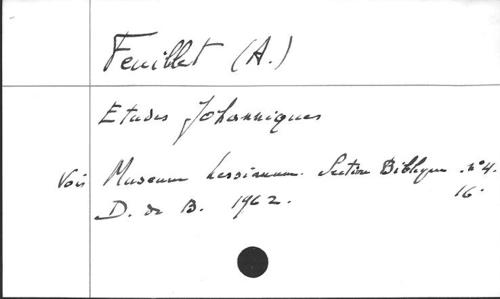 Feuillet (A.)
Etudes Johanniques
Vois Museum Lessianum. Section Biblique. n°4.
D. de B. 1962. 16.